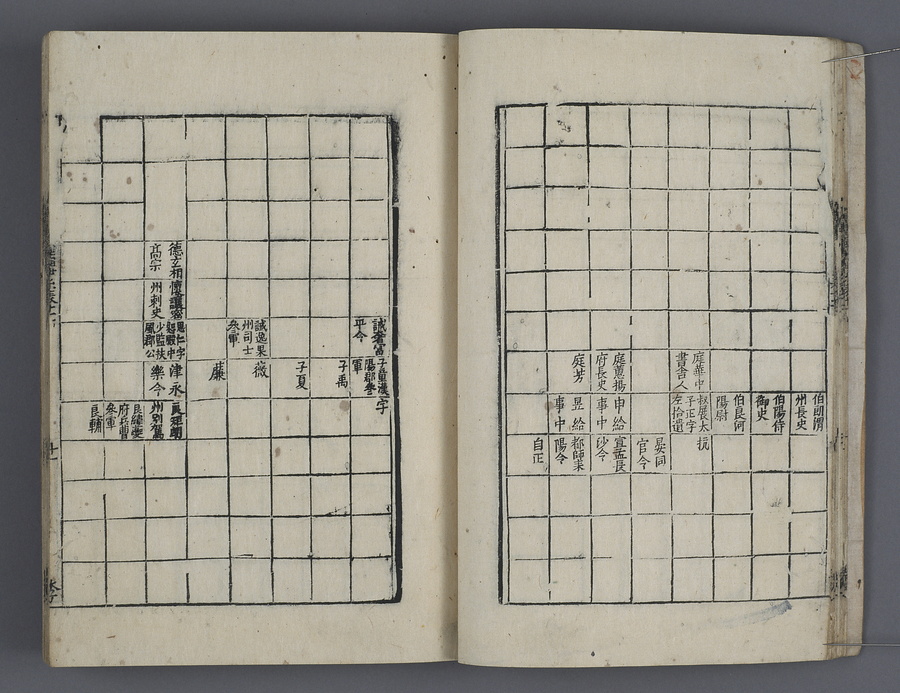 伯朗渭
州長史
伯陽侍
御史
伯良河
陽尉
庭華中
書舍人
叔展大
子正字
左拾遺
抗
晏同
官令
庭蕙揚
府長史
申給
事中
宣孟長
沙令
庭芳
昱給
事中
都師萊
陽令
自正
誠奢富
平令
陽郡參
軍
子禹
子夏
誠逸果
州司士
參軍
微
廉
德玄相
高宗
州刺史
思仁字
少監扶
風郡公
津永
樂令
州別駕
府兵曹
參軍
良輔